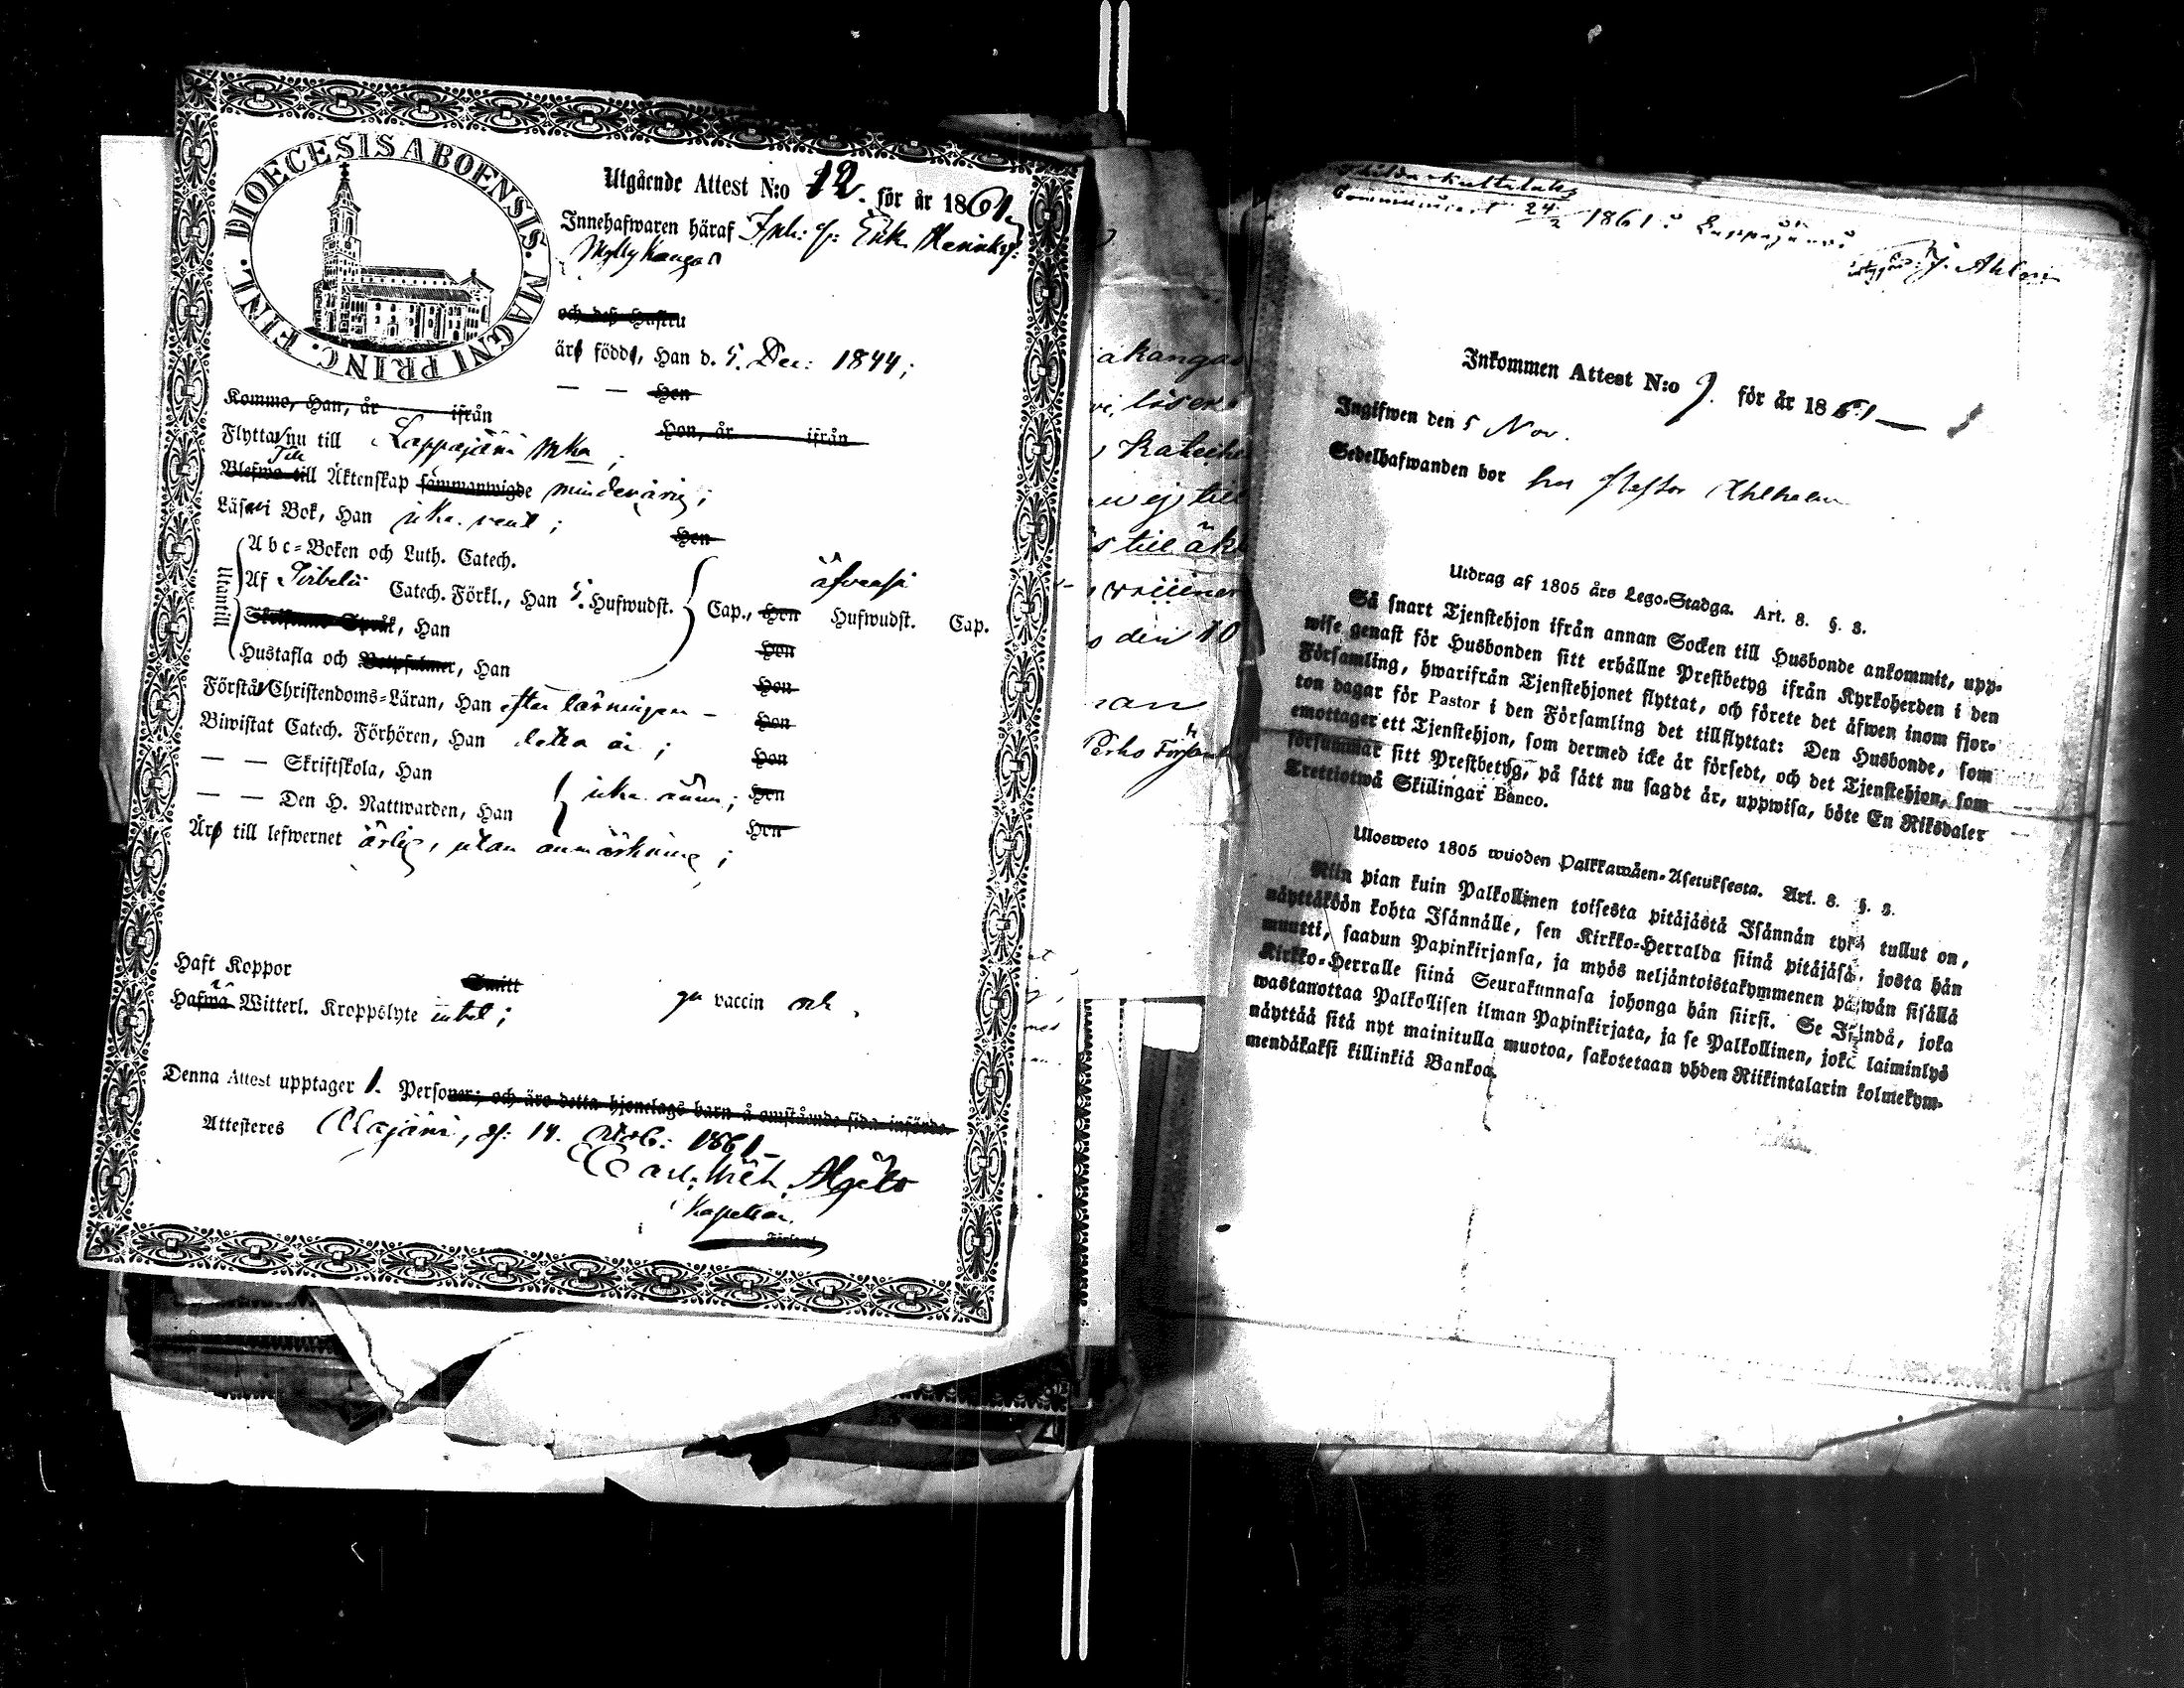 DIOECESIS ABOENSIS. MAGNI PRINC. FINL.
Utgående Attest N:o 12. för år 1861.
Innehafwaren häraf Inh: s: Erik
Myllykangas
och deß Hustru
äro född, Han d. 5. Dec: 1844;
— — Hon
Kommo, Han, år ifrån
Hon, år ifrån
Flyttar nu till Lappajärvi
Till
Blefwo till Äktenskap sammanwigde minderårig;
Läser i Bok, Han rent;
Hon
Utantill
Abc-Boken och Luth. Catech.
Af Catech. Förkl., Han 5. Hufwudst. Cap., Hon Hufwudst. Cap.
Språk, Han Hon
Hustafla och Botpsalmer, Han Hon
Förstår Christendoms-Läran, Han efter lärningen – Hon
Biwistat Catech. Förhören, Han detta år; Hon
— — Skriftskola, Han Hon
— — Den H. Nattwarden, Han icke ännu; Hon
Äro till lefwernet ärlig, utan anmärkning;
Haft Koppor Smitt vaccin och
Hafwa Witterl. Kroppslyte intet;
Denna Attest upptager 1. Personer; och äro detta hjonelags barn å omstående sida införde.
Attesteres Alajärvi, d: 14. Octob: 1861.
Carl Wilh.
Kapellan.
Församl
akangas
den 10
Communicerat 24/2 1861 i Lappajärvi
Inkommen Attest N:o 9. för år 1861
Ingifwen den 5 Nov.
Sedelhafwanden bor hos Pastor Ahlholm
Utdrag af 1805 års Lego-Stadga. Art. 8. §. 3.
Så snart Tjenstehjon ifrån annan Socken till Husbonde ankommit, upp-
wise genast för Husbonden sitt erhållne Prestbetyg ifrån Kyrkoherden i den
Församling, hwarifrån Tjenstehjonet flyttat, och förete det äfwen inom fjor-
ton dagar för Pastor i den Församling det tillflyttat: Den Husbonde, som
emottager ett Tjenstehjon, som dermed icke är försedt, och det Tjenstehjon, som
försummar sitt Prestbetyg, på sätt nu sagdt är, uppwisa, böte En Riksdaler
Trettiotwå Skillingar Banco.
Ulosweto 1805 wuoden Palkkawäen-Asetuksesta. Art. 8. §. 3.
Niin pian kuin Palkollinen toisesta pitäjästä Isännän tykö tullut on,
näyttäköön kohta Isännälle, sen Kirkko-Herralda siinä pitäjäsä, josta hän
muutti, saadun Papinkirjansa, ja myös neljäntoistakymmenen päiwän sisällä
Kirkko-Herralle siinä Seurakunnasa johonga hän siirsi. Se Isändä, joka
wastanottaa Palkollisen ilman Papinkirjata, ja se Palkollinen, joka laiminlyö
näyttää sitä nyt mainitulla muotoa, sakotetaan yhden Riikintalarin kolmekym-
mendäkaksi killinkiä Bankoa.